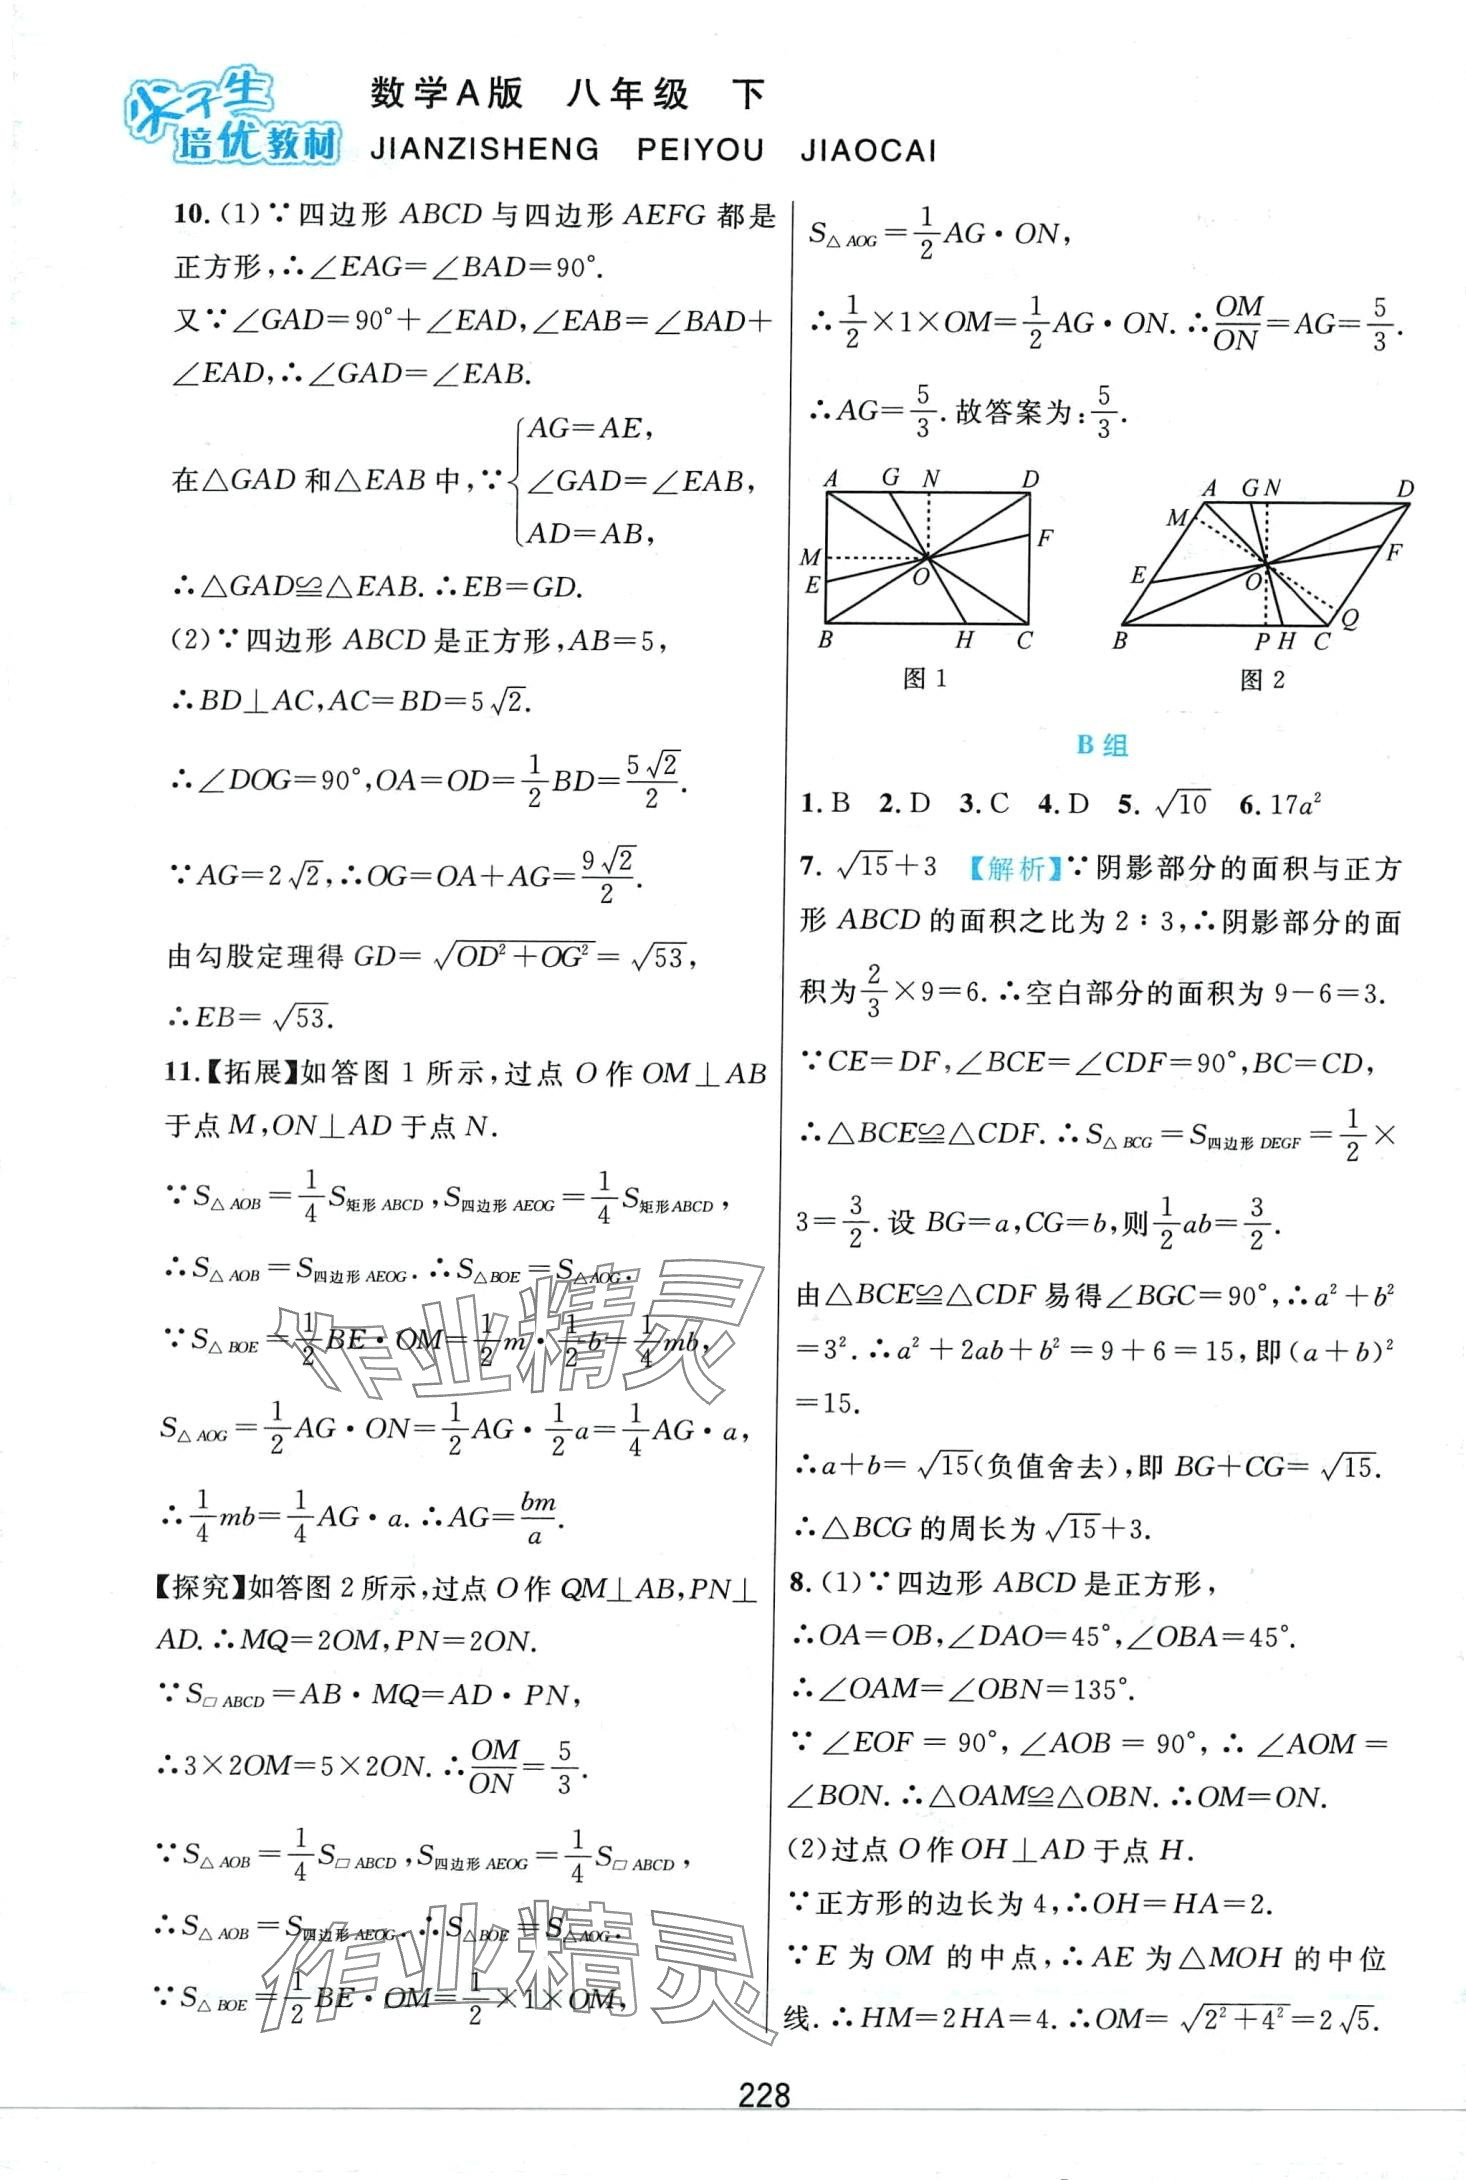 尖子生
培优教材
数学A版 八年级 下
JIANZISHENG PEIYOU JIAOCAI
10.(1)∵四边形 ABCD 与四边形 AEFG 都是
正方形,∴∠EAG=∠BAD=90°.
又∵∠GAD=90°+∠EAD,∠EAB=∠BAD+
∠EAD,∴∠GAD=∠EAB.
在△GAD 和△EAB 中,∵{AG=AE,
∠GAD=∠EAB,
AD=AB,
∴△GAD≌△EAB.∴EB=GD.
(2)∵四边形 ABCD 是正方形,AB=5,
∴BD⊥AC,AC=BD=5√2.
∴∠DOG=90°,OA=OD=1/2BD=5√2/2.
∵AG=2√2,∴OG=OA+AG=9√2/2.
由勾股定理得 GD=√(OD²+OG²)=√53,
∴EB=√53.
11.【拓展】如答图 1 所示,过点 O 作 OM⊥AB
于点 M,ON⊥AD 于点 N.
∵S△AOB=1/4S矩形ABCD,S四边形AEOG=1/4S矩形ABCD,
∴S△AOB=S四边形AEOG.∴S△BOE=S△AOG.
∵S△BOE=1/2BE·OM=1/2m·1/2b=1/4mb,
S△AOG=1/2AG·ON=1/2AG·1/2a=1/4AG·a,
∴1/4mb=1/4AG·a.∴AG=bm/a.
【探究】如答图 2 所示,过点 O 作 QM⊥AB,PN⊥
AD.∴MQ=2OM,PN=2ON.
∵S▱ABCD=AB·MQ=AD·PN,
∴3×2OM=5×2ON.∴OM/ON=5/3.
∵S△AOB=1/4S▱ABCD,S四边形AEOG=1/4S▱ABCD,
∴S△AOB=S四边形AEOG.∴S△BOE=S△AOG.
∵S△BOE=1/2BE·OM=1/2×1×OM,
S△AOG=1/2AG·ON,
∴1/2×1×OM=1/2AG·ON.∴OM/ON=AG=5/3.
∴AG=5/3.故答案为:5/3.
A G N D
M
E
O
F
B H C
图 1
A G N D
M
E
O
F
Q
B P H C
图 2
B 组
1.B 2.D 3.C 4.D 5.√10 6.17a²
7.√15+3 【解析】∵阴影部分的面积与正方
形 ABCD 的面积之比为 2∶3,∴阴影部分的面
积为2/3×9=6.∴空白部分的面积为 9-6=3.
∵CE=DF,∠BCE=∠CDF=90°,BC=CD,
∴△BCE≌△CDF.∴S△BCG=S四边形DEGF=1/2×
3=3/2.设 BG=a,CG=b,则1/2ab=3/2.
由△BCE≌△CDF 易得∠BGC=90°,∴a²+b²
=3².∴a²+2ab+b²=9+6=15,即(a+b)²
=15.
∴a+b=√15(负值舍去),即 BG+CG=√15.
∴△BCG 的周长为√15+3.
8.(1)∵四边形 ABCD 是正方形,
∴OA=OB,∠DAO=45°,∠OBA=45°.
∴∠OAM=∠OBN=135°.
∵∠EOF=90°,∠AOB=90°,∴∠AOM=
∠BON.∴△OAM≌△OBN.∴OM=ON.
(2)过点 O 作 OH⊥AD 于点 H.
∵正方形的边长为 4,∴OH=HA=2.
∵E 为 OM 的中点,∴AE 为△MOH 的中位
线.∴HM=2HA=4.∴OM=√(2²+4²)=2√5.
作业精灵
作业精灵
228